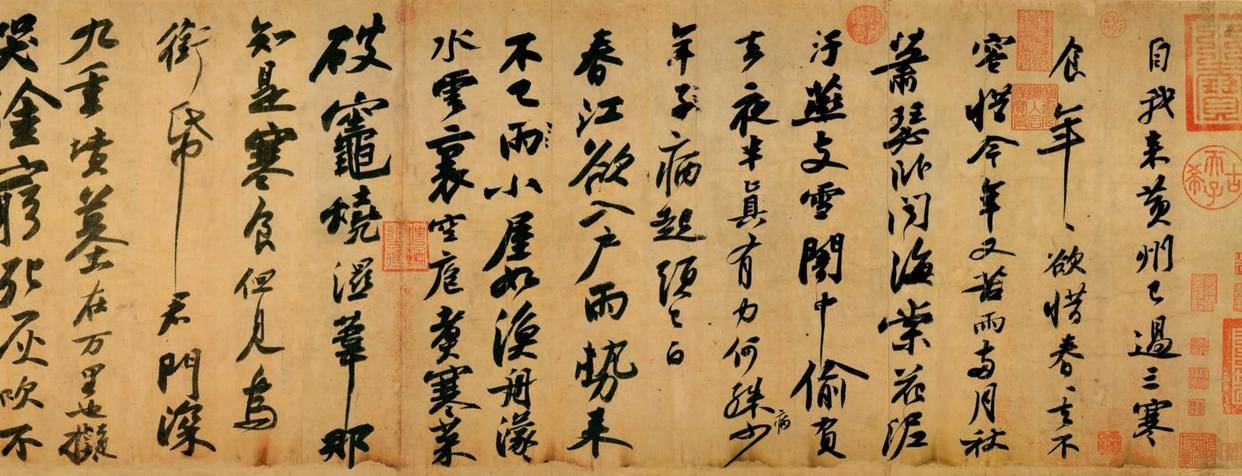 古希天子
自我來黃州已過三寒
食年〻欲惜春〻去不
容惜今年又苦雨兩月秋
蕭瑟臥聞海棠花泥
汙燕支雪闇中偷負
去夜半真有力何殊少病
年子病起頭已白
春江欲入戶雨勢來
不已雨小屋如漁舟濛
水雲裏空庖煮寒菜
破竈燒濕葦那
知是寒食但見烏
銜帋君門深
九重墳墓在万里也擬
哭塗窮死灰吹不